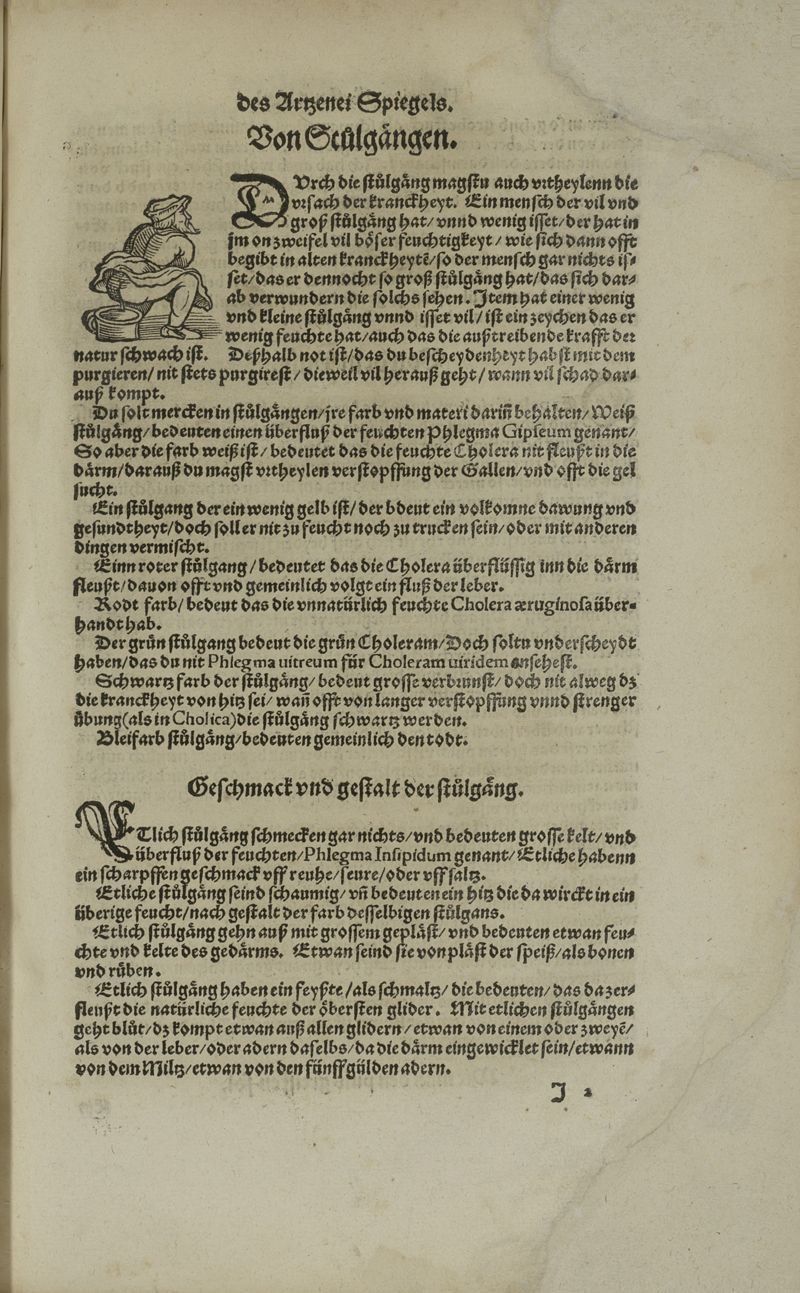 des Artzenei Spiegels.
Von Stůlgängen.
DUrch die stůlgäng magstu auch vrtheylenn die
vrsach der kranckheyt. Ein mensch der vil vnd
groß stůlgäng hat/ vnnd wenig isset/ der hat in
jm on zweifel vil böser feuchtigkeyt/ wie sich dann offt
begibt in alten kranckheytē/ so der mensch gar nichts is⸗
set/ das er dennocht so groß stůlgäng hat/ das sich dar⸗
ab verwundern die solchs sehen. Item hat einer wenig
vnd kleine stůlgäng vnnd isset vil/ ist ein zeychen das er
wenig feuchte hat/ auch das die außtreibende krafft der
natur schwach ist. Deßhalb not ist/ das du bescheydenheyt habst mit dem
purgieren/ nit stets purgirest/ dieweil vil herauß geht/ wann vil schad dar⸗
auß kompt.
Du solt mercken in stůlgängen/ jre farb vnd materi dariñ behalten/ Weiß
stůlgäng/ bedeuten einen überfluß der feuchten Phlegma Gipseum genant/
So aber die farb weiß ist/ bedeutet das die feuchte Cholera nit fleußt in die
därm/ darauß du magst vrtheylen verstopffung der Gallen/ vnd offt die gel
sucht.
Ein stůlgang der ein wenig gelb ist/ der bdeut ein volkomne dawung vnd
gesundtheyt/ doch soll er nit zu feucht noch zu trucken sein/ oder mit anderen
dingen vermischt.
Einn roter stůlgang/ bedeutet das die Cholera überflüssig inn die därm
fleußt/ dauon offt vnd gemeinlich volgt ein fluß der leber.
Rodt farb/ bedeut das die vnnatürlich feuchte Cholera æruginosa über⸗
handt hab.
Der grün stůlgang bedeut die grün Choleram/ Doch soltu vnderscheydt
haben/ das du nit Phlegma uitreum für Choleram uiridem ansehest.
Schwartz farb der stůlgäng/ bedeut grosse verbrunst/ doch nit alweg dz
die kranckheyt von hitz sei/ wañ offt von langer verstopffung vnnd strenger
übung (als in Cholica) die stůlgäng schwartz werden.
Bleifarb stůlgäng/ bedeuten gemeinlich den todt.
Geschmack vnd gestalt der stůlgäng.
ETlich stůlgäng schmecken gar nichts/ vnd bedeuten grosse kelt/ vnd
überfluß der feuchten/ Phlegma Insipidum genant/ Etliche habenn
ein scharpffen geschmack vff reuhe/ seure/ oder vff saltz.
Etliche stůlgäng seind schaumig/ vñ bedeuten ein hitz die da wirckt in ein
überige feucht/ nach gestalt der farb desselbigen stůlgans.
Etlich stůlgäng gehn auß mit grossem gepläst/ vnd bedeuten etwan feu⸗
chte vnd kelte des gedärms. Etwan seind sie von pläst der speiß/ als bonen
vnd rüben.
Etlich stůlgäng haben ein feyßte/ als schmaltz/ die bedeuten/ das da zer⸗
fleußt die natürliche feuchte der öbersten glider. Mit etlichen stůlgängen
geht blůt/ dz kompt etwan auß allen glidern/ etwan von einem oder zweyē/
als von der leber/ oder adern daselbs/ da die därm eingewicklet sein/ etwann
von dem Miltz/ etwan von den fünff gülden adern.
J 2